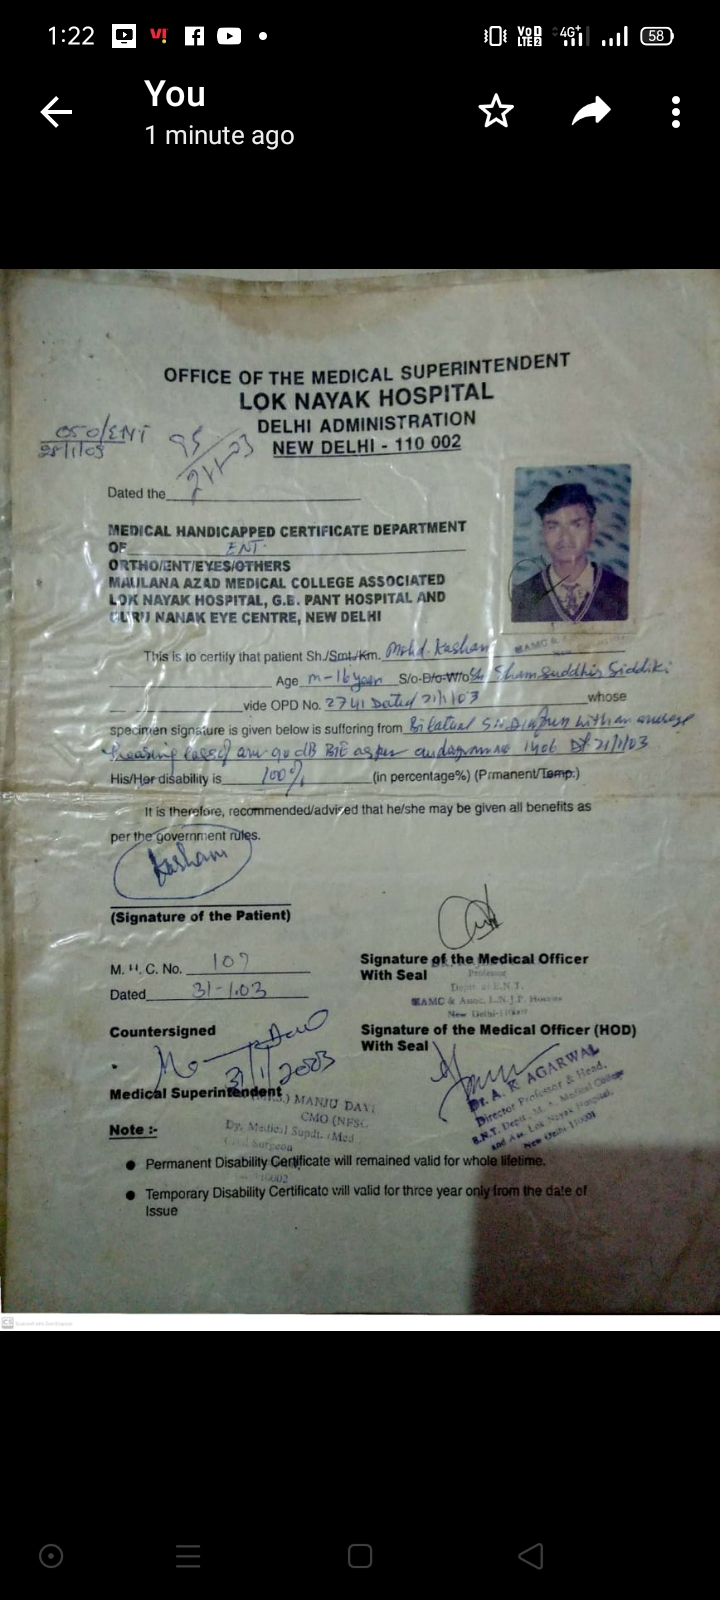 1:22
VoD LTE2
4G+
58
You
1 minute ago
OFFICE OF THE MEDICAL SUPERINTENDENT
LOK NAYAK HOSPITAL
DELHI ADMINISTRATION
NEW DELHI - 110 002
Dated the
MEDICAL HANDICAPPED CERTIFICATE DEPARTMENT
OF ENT
ORTHO/ENT/EYES/OTHERS
MAULANA AZAD MEDICAL COLLEGE ASSOCIATED
LOK NAYAK HOSPITAL, G.B. PANT HOSPITAL AND
GURU NANAK EYE CENTRE, NEW DELHI
This is to certify that patient Sh./Smt./Km. Mohd. Kasham
Age M-16 year S/o-D/o-W/o Sh Shamsuddhir Siddiki
vide OPD No. 2741 Dated 21/1/03 whose
specimen signature is given below is suffering from Bilatual with an average
hearing loss of 90 dB B/E as per 1406 Dt 21/1/03
His/Her disability is 100% (in percentage%) (Prmanent/Temp.)
It is therefore, recommended/advised that he/she may be given all benefits as
per the government rules.
Kasham
(Signature of the Patient)
Signature of the Medical Officer
With Seal
Professor
Deptt of E.N.T.
MAMC & Assoc. L.N.J.P. Hospital
New Delhi-110002
M. H. C. No. 107
Dated 31-1.03
Countersigned
31/1/2003
Medical Superintendent
Signature of the Medical Officer (HOD)
With Seal
Dr. A. K AGARWAL
Director Professor & Head,
E.N.T. Deptt. M. A. Medical College
and Ass. Lok Nayak Hospital,
New Delhi-110001
MANJU DAV
CMO (NFSG
Dy. Medical Supdt. (Med
Surgeon
Note :-
● Permanent Disability Certificate will remained valid for whole lifetime.
● Temporary Disability Certificate will valid for three year only from the date of
Issue
CS Scanned with CamScanner